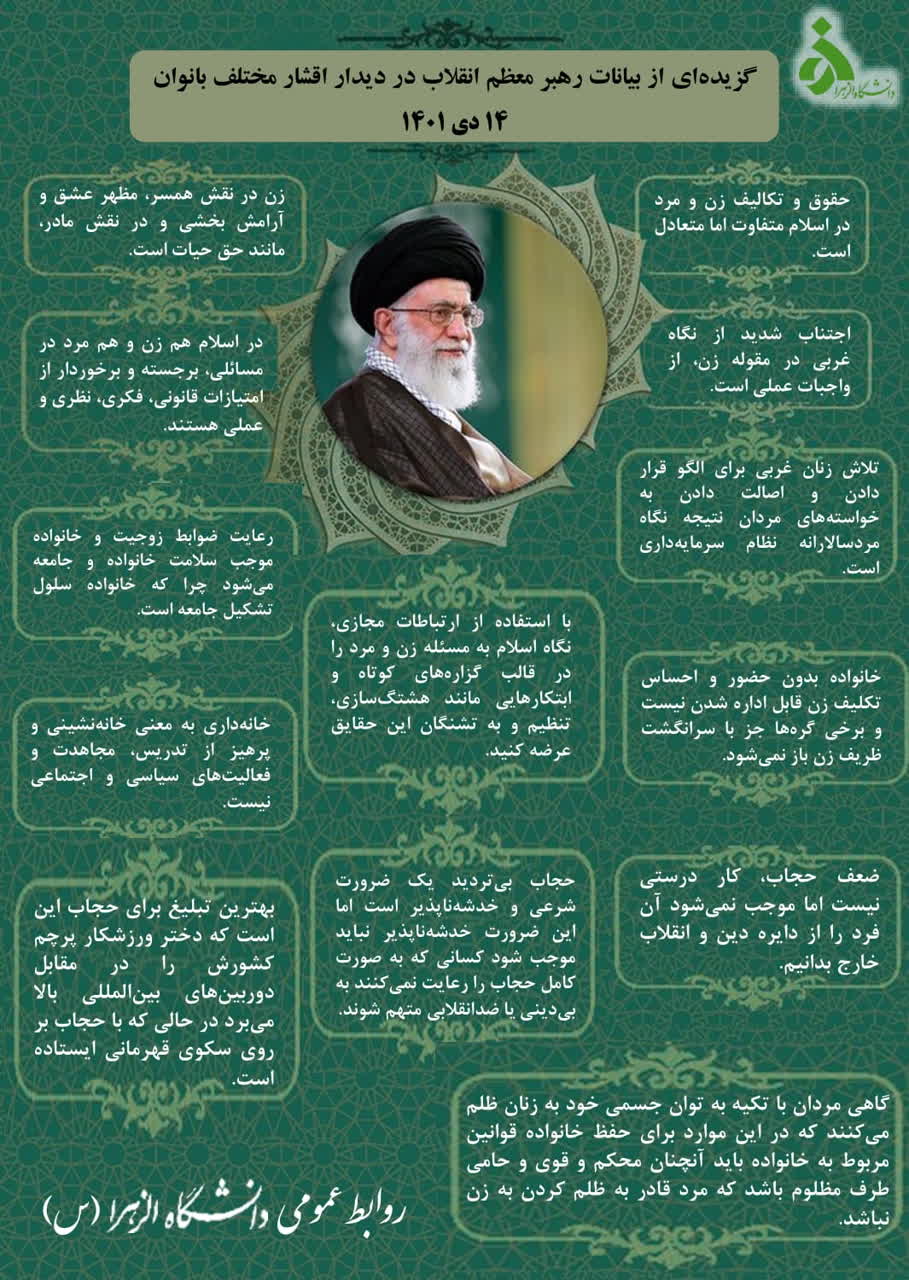 دانشگاه الزهرا
گزیده‌ای از بیانات رهبر معظم انقلاب در دیدار اقشار مختلف بانوان
۱۴ دی ۱۴۰۱
حقوق و تکالیف زن و مرد
در اسلام متفاوت اما متعادل
است.
زن در نقش همسر، مظهر عشق و
آرامش بخشی و در نقش مادر،
مانند حق حیات است.
اجتناب شدید از نگاه
غربی در مقوله زن، از
واجبات عملی است.
در اسلام هم زن و هم مرد در
مسائلی، برجسته و برخوردار از
امتیازات قانونی، فکری، نظری و
عملی هستند.
تلاش زنان غربی برای الگو قرار
دادن و اصالت دادن به
خواسته‌های مردان نتیجه نگاه
مردسالارانه نظام سرمایه‌داری
است.
رعایت ضوابط زوجیت و خانواده
موجب سلامت خانواده و جامعه
می‌شود چرا که خانواده سلول
تشکیل جامعه است.
با استفاده از ارتباطات مجازی،
نگاه اسلام به مسئله زن و مرد را
در قالب گزاره‌های کوتاه و
ابتکارهایی مانند هشتگ‌سازی،
تنظیم و به تشنگان این حقایق
عرضه کنید.
خانواده بدون حضور و احساس
تکلیف زن قابل اداره شدن نیست
و برخی گره‌ها جز با سرانگشت
ظریف زن باز نمی‌شود.
خانه‌داری به معنی خانه‌نشینی و
پرهیز از تدریس، مجاهدت و
فعالیت‌های سیاسی و اجتماعی
نیست.
ضعف حجاب، کار درستی
نیست اما موجب نمی‌شود آن
فرد را از دایره دین و انقلاب
خارج بدانیم.
حجاب بی‌تردید یک ضرورت
شرعی و خدشه‌ناپذیر است اما
این ضرورت خدشه‌ناپذیر نباید
موجب شود کسانی که به صورت
کامل حجاب را رعایت نمی‌کنند به
بی‌دینی یا ضدانقلابی متهم شوند.
بهترین تبلیغ برای حجاب این
است که دختر ورزشکار پرچم
کشورش را در مقابل
دوربین‌های بین‌المللی بالا
می‌برد در حالی که با حجاب بر
روی سکوی قهرمانی ایستاده
است.
گاهی مردان با تکیه به توان جسمی خود به زنان ظلم
می‌کنند که در این موارد برای حفظ خانواده قوانین
مربوط به خانواده باید آنچنان محکم و قوی و حامی
طرف مظلوم باشد که مرد قادر به ظلم کردن به زن
نباشد.
روابط عمومی دانشگاه الزهرا (س)